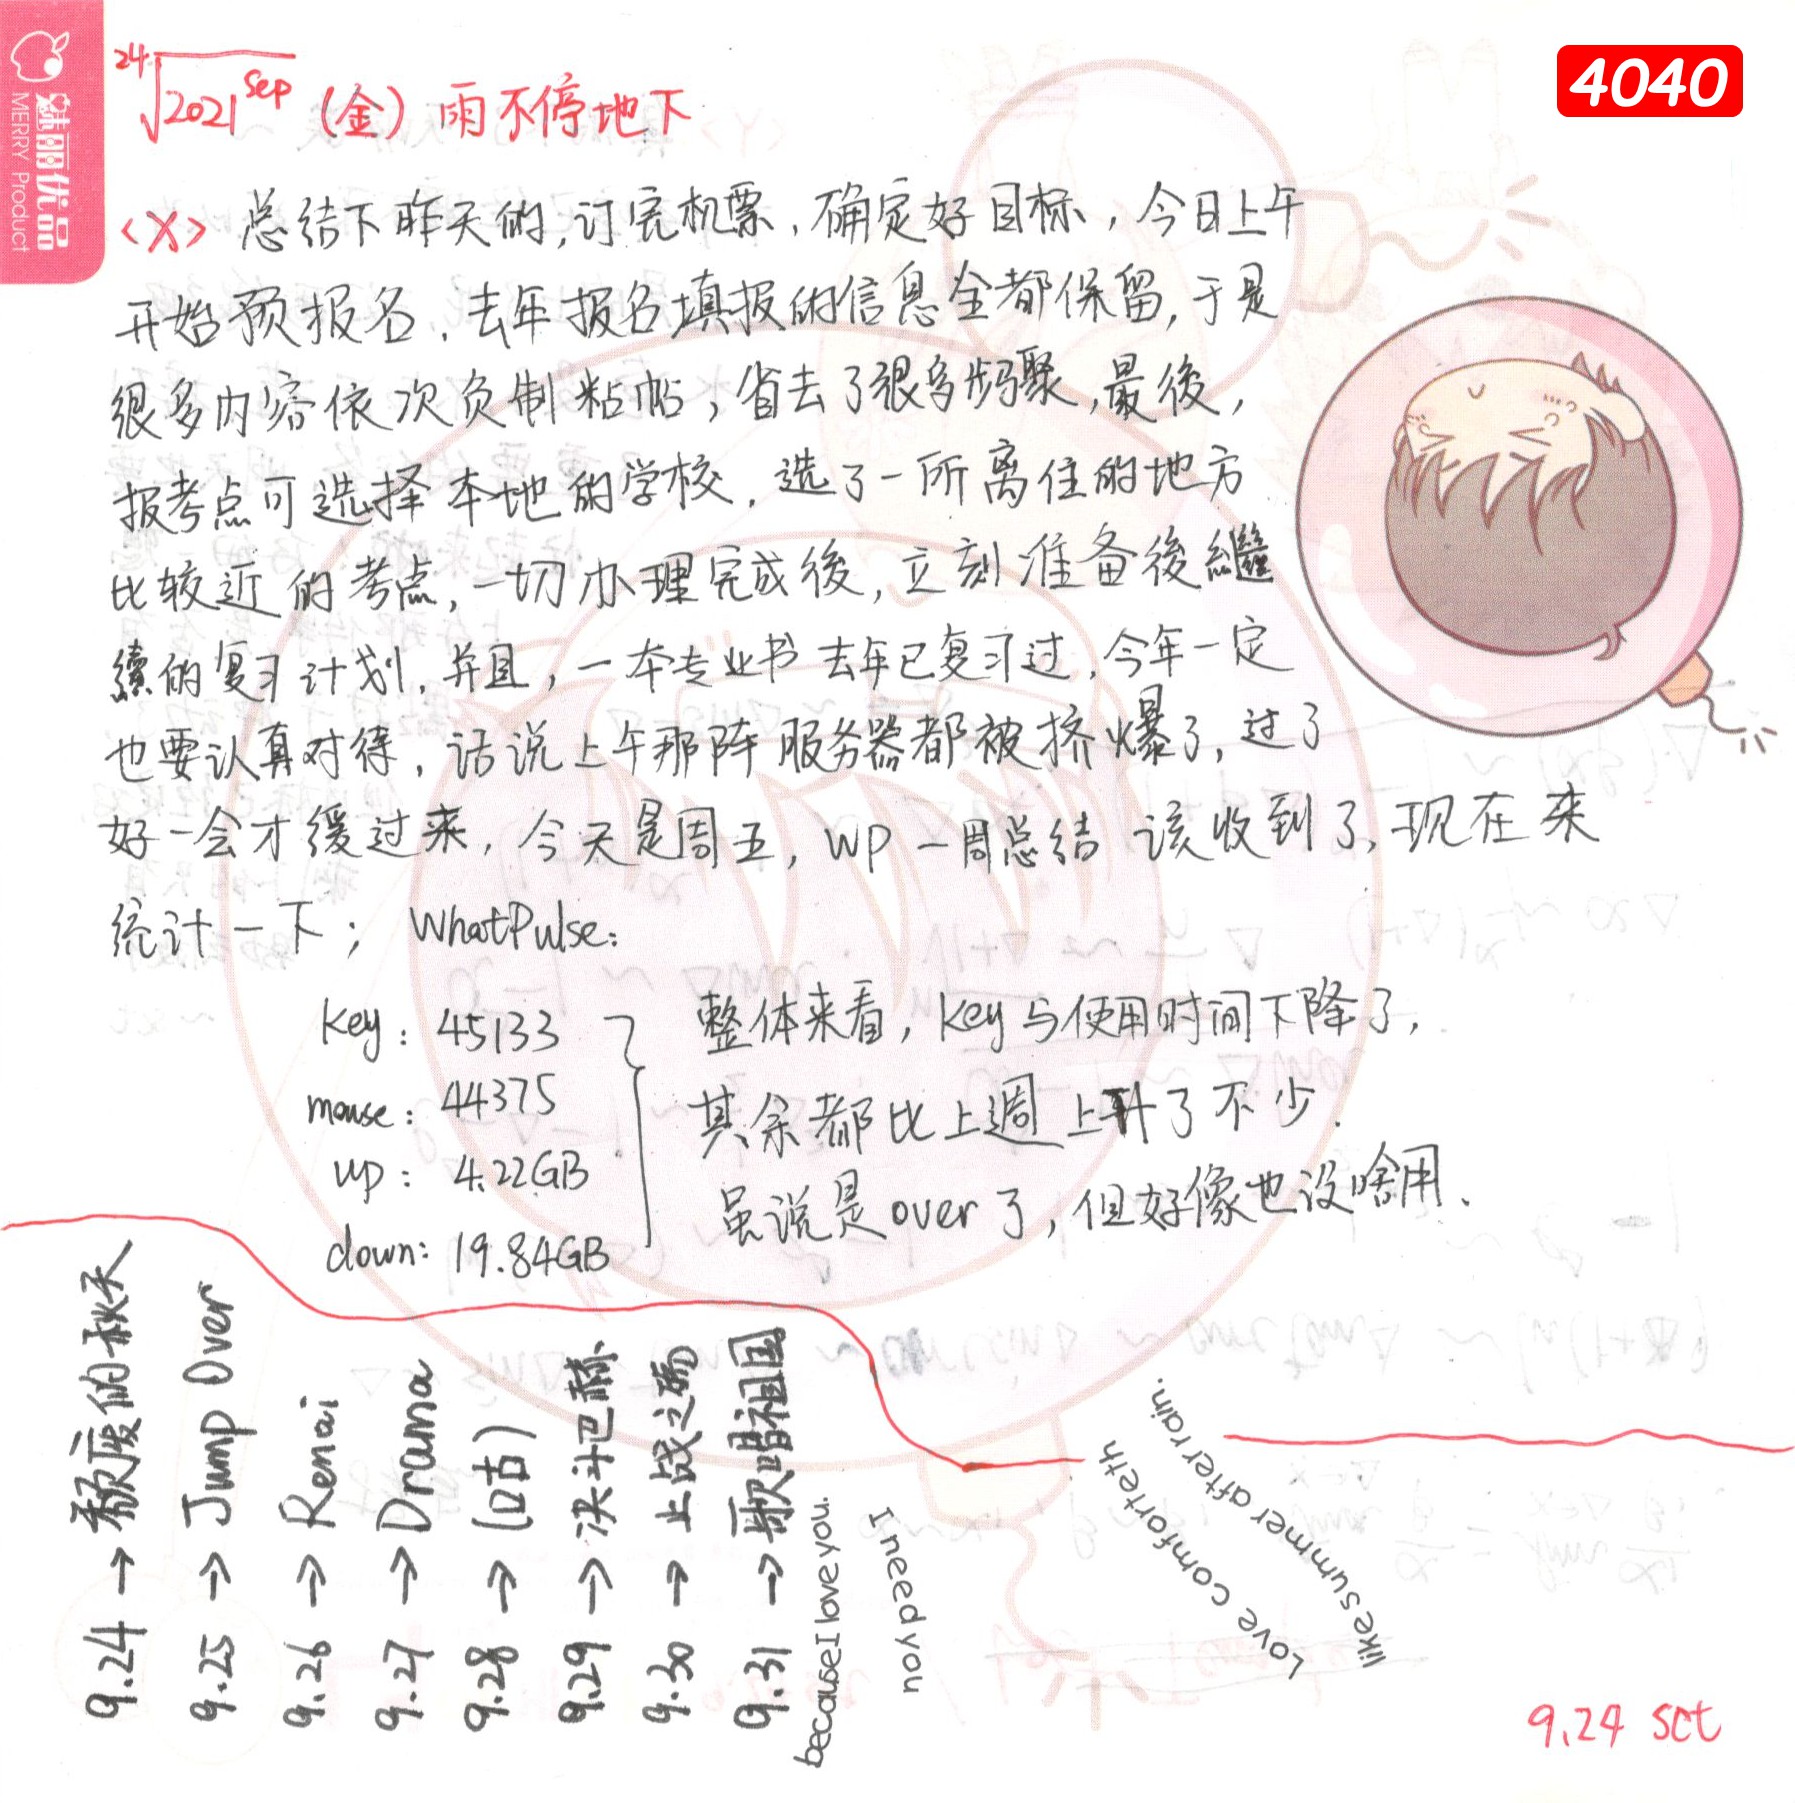 魅丽优品
MERRY Product
4040
24√2021^Sep (金) 雨不停地下
<X> 总结下昨天的,订完机票,确定好目标,今日上午
开始预报名,去年报名填报的信息全都保留,于是
很多内容依次负制粘帖,省去了很多步骤,最後,
报考点可选择本地的学校,选了一所离住的地方
比较近的考点,一切办理完成後,立刻准备後繼
續的复习计划,并且,一本专业书去年已复习过,今年一定
也要认真对待,话说上午那阵服务器都被挤爆了,过了
好一会才缓过来,今天是周五,WP一周总结该收到了,现在来
统计一下; WhatPulse:
Key: 45133
mouse: 44375
up: 4.22GB
down: 19.84GB
整体来看,Key与使用时间下降了,
其余都比上週上升了不少.
虽说是over了,但好像也没啥用.
9.24 → 颓废的秋天
9.25 → Jump Over
9.26 → Renai
9.27 → Drama
9.28 → (咕)
9.29 → 决斗巴赫
9.30 → 止战之殇
9.31 → 歌唱祖国
because I love you.
I need you
Love comforteth
like summer after rain.
9.24 set